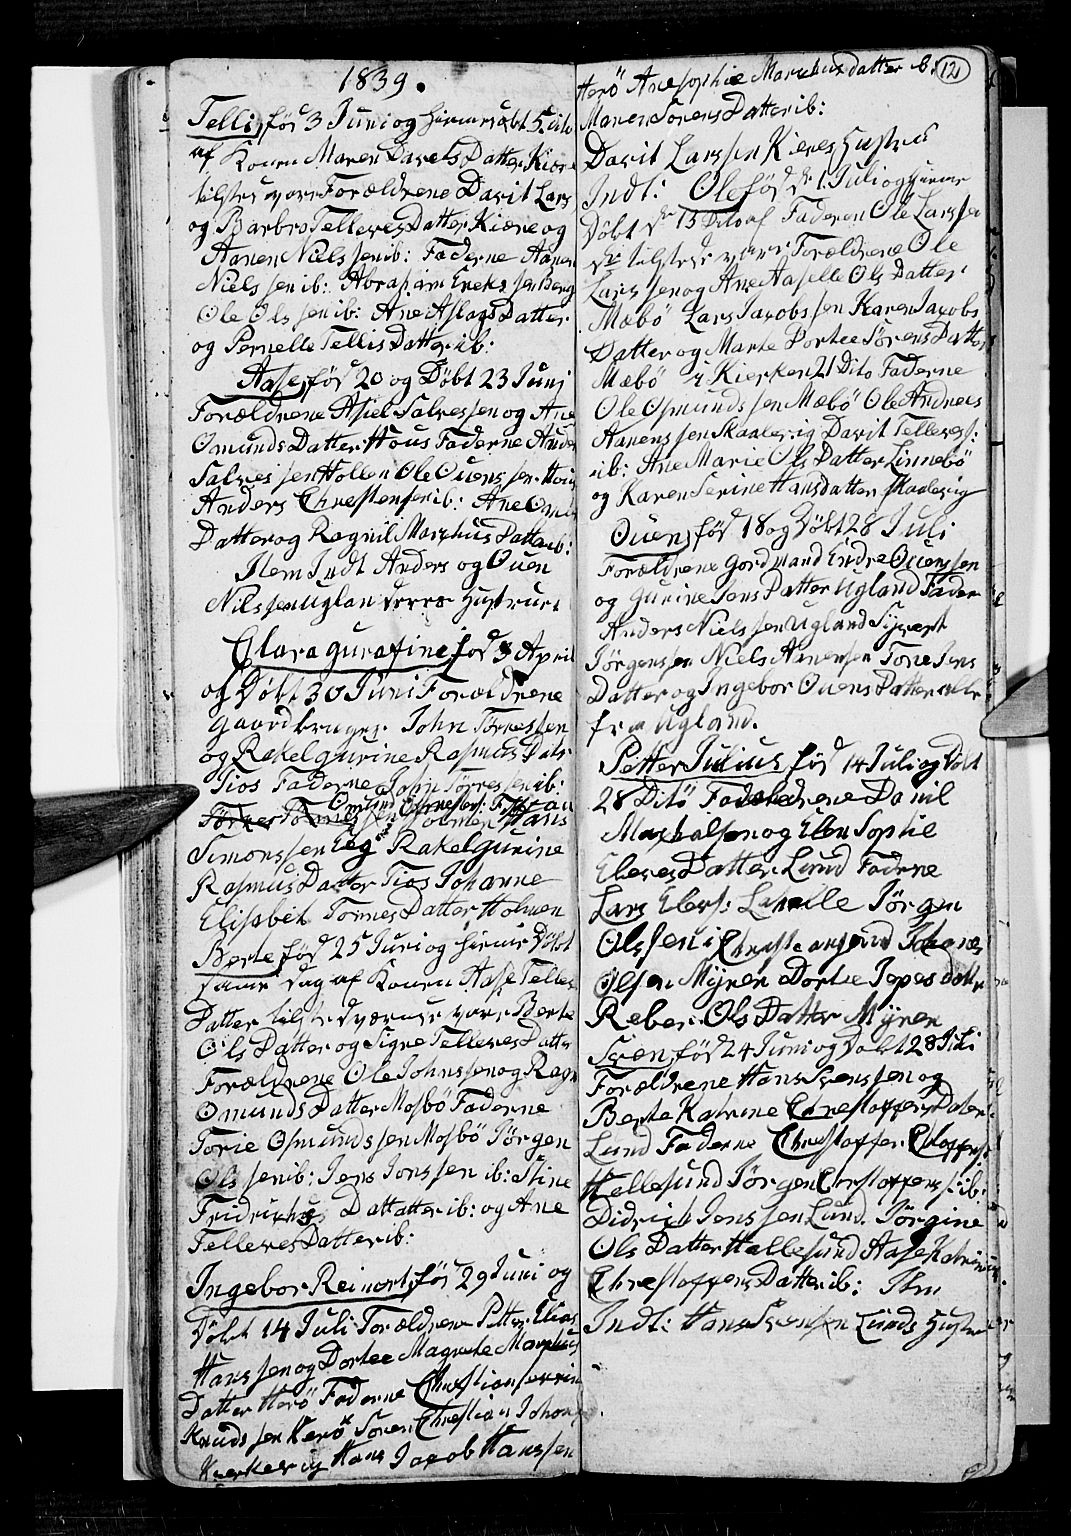 1839.
Tellis, fød 3 Juni og hiemedøbt 5. dito
af Konen Maren Davets Datter Kiære
tilstede vare Forældrene Davit Lars
og Barbro Telleves Datter Kiære og
Aanen Nielssen ib: Faderne Aanen
Nielssen ib: Abraham Erekssen Berg
Ole Olssen ib: Ane Aslags Datter
og Pernelle Tellis Datter ib:
Aase, fød 20 og Døbt 23 Juni
Forældrene Asiel Salvessen og Ane
Omunds Datter Hous Faderne Anders
Salvessen Hollen Ole Ouenssen Hous
Anders Chrestensen ib: Ane Om
Datter og Ragnil Marchus Datter ib:
Item Indt Anders og Ouen
Nilssen Uglan deres Hustruer
Clara Gurafine, fød 3 April
og Døbt 30 Juni Forældrene
gaardbruger John Tørressen
og Rakel gurine Rasmus Dats
Tios Faderne John Tørressen ib:
Omund
Tørres Tønnessen Holmen Hans
Simonssen Eeg Rakel gurine
Rasmus Datter Tios Johanne
Elisabet Tønnes Datter Holmen
Berte, fød 25 Juni og hieme Døbt
same dag af Konen Aase Telles
Datter tilstedværende vare Berte
Ols Datter og Signe Telleves Datter
Forældrene Ole Johnssen og Ragn
Omunds Datter Mosbø Faderne
Torie Osmundssen Mosbø Jörgen
Olssen ib: Jens Jonssen ib: Stine
Fridrichs Dattatter ib: og Ane
Telleves Datter ib:
Ingebor Reinort, fød 29 Juni og
Døbt 14 Juli Forældrene Petter Elias
Hanssen og Dortee Magrete Marchus
Datter Herö Faderne Chrestian
Knudssen Herö Søren Chrestian Johan
Hans Jacob Hanssen
12
Herö Ane sophie Marchus datter ib:
Maren Sorens Datter ib:
Davit Larssen Kieres Hustru
Indt: Ole fød d 1. Juli og hieme
Døbt d 13 Dito af Faderen Ole Larssen
der tilstede vare Forældrene Ole
Larssen og Ane Aaselle Ols Datter
Mæbö Lars Jacobssen Karen Jacobs
Datter og Marte Dortee Sörens Datter
Mæbö i Kierken 21 Dito Faderne
Ole Osmundssen Mæbö Ole Andreas
Aanenssen Skaalevig Davit Tellevss:
ib: Ane Marie Ols Datter Linnebö
og Karen Serine Hansdatter Skaalevig
Ouen, fød 18 og Döbt 28 Juli
Forældrene Gordmand Endre Ouenssen
og Gurine Jens Datter Ugland Fader
Anders Nielssen Ugland Sivert
Jörgenssen Niels Aanensen Tone Jens
Datter og Ingebor Ouens Datter alle
fra Ugland.
Petter Julius fød 14 Juli og Döbt
28 Dito Forældrene Danil
og Elen Sophie
Eleves Datter Lund Faderne
Lars Jörgen
Olssen i Chrestiansand
Olsen Myren Dortee Jepes datter
Ols Datter Myren
Sven, fød 24 Juni og Döbt 28 Juli
Forældrene Hans Svenssen og
Berte Katrine Chrestoffers Dater
Lund Faderne Chrestoffer
Hellesund Jörgen Chrestofferss: ib:
Didrich Jenssen Lund. Jörgine
Ols Datter Hallesund Aase Katrine
Chrestoffers Datter ib: Item
Indt: Hans Svensen Lunds Hustru